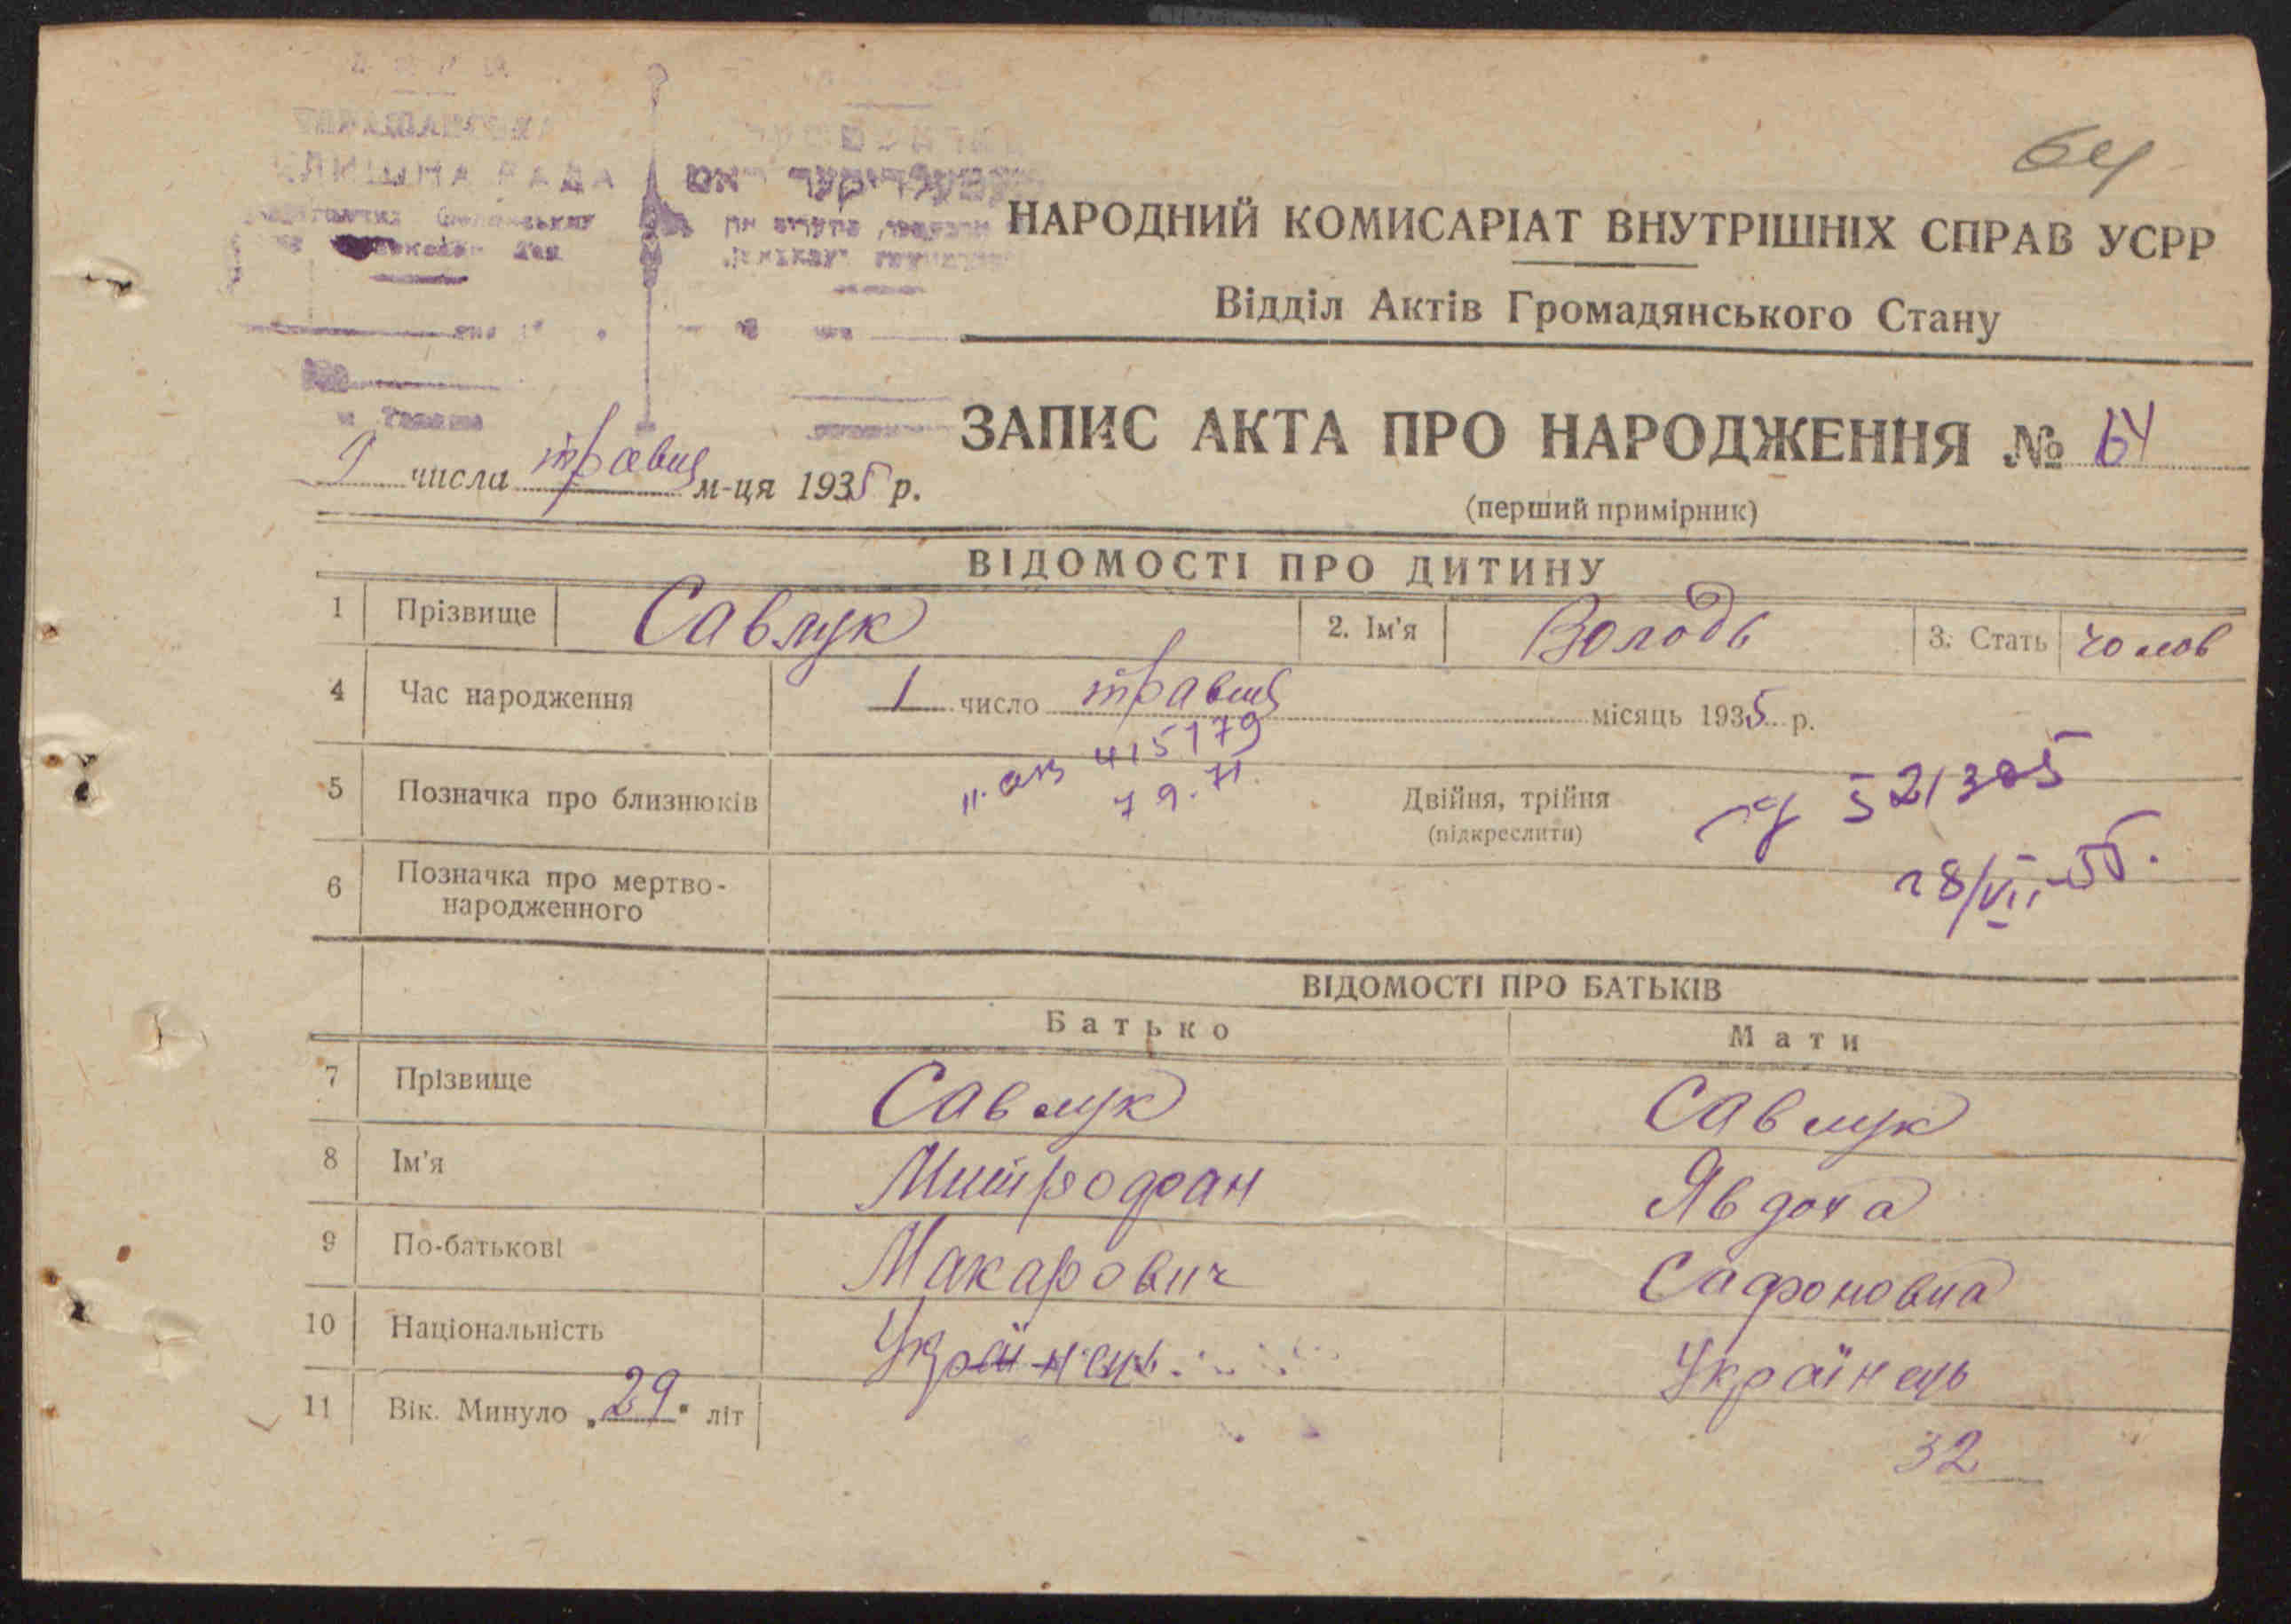 64
РАДА
НАРОДНИЙ КОМИСАРІАТ ВНУТРІШНІХ СПРАВ УСРР
Відділ Актів Громадянського Стану
ЗАПИС АКТА ПРО НАРОДЖЕННЯ № 64
9 числа травня м-ця 1935 р.
(перший примірник)
ВІДОМОСТІ ПРО ДИТИНУ
1 Прізвище Савлук 2. Ім'я Володь 3. Стать чолов
4 Час народження 1 число травня місяць 1935 р.
415179
7 9. 71.
5 Позначка про близнюків Двійня, трійня
(підкреслити)
521305
28/VII-55.
6 Позначка про мертво-
народженного
ВІДОМОСТІ ПРО БАТЬКІВ
Батько Мати
7 Прізвище Савлук Савлук
8 Ім'я Митрофан Явдоха
9 По-батькові Макарович Сафоновна
10 Національність Українець Українець
11 Вік. Минуло „29" літ 32